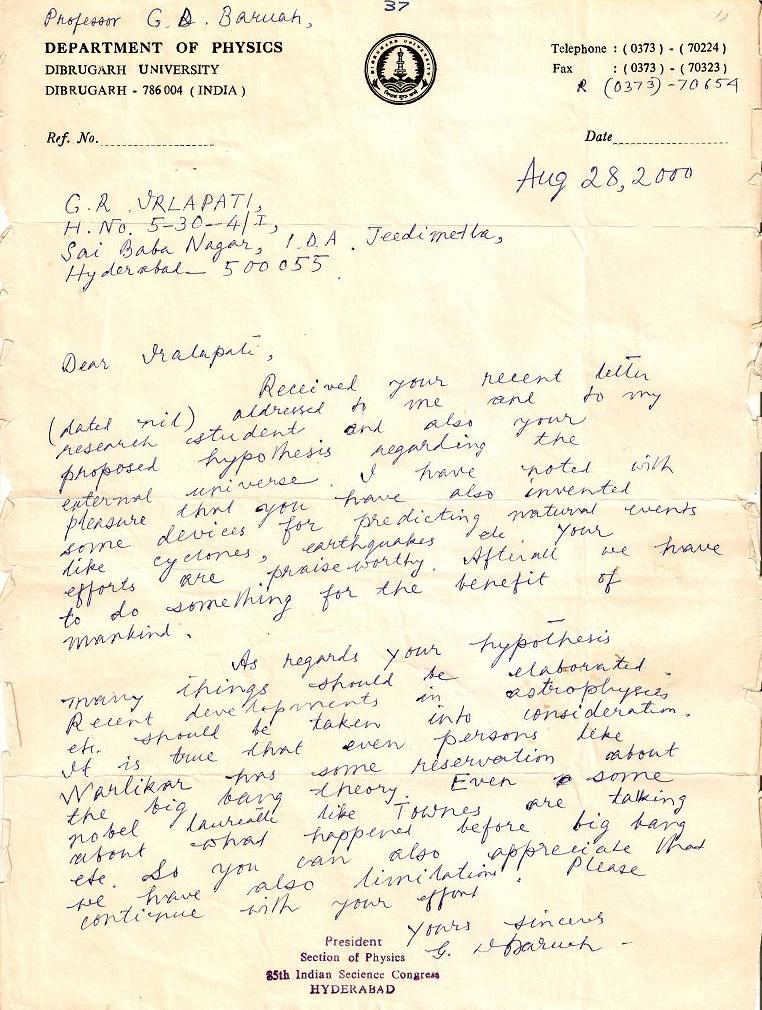 37
Professor G. D. Baruah,
DEPARTMENT OF PHYSICS
DIBRUGARH UNIVERSITY
DIBRUGARH - 786 004 ( INDIA )
DIBRUGARH UNIVERSITY
Telephone : ( 0373 ) - ( 70224 )
Fax : ( 0373 ) - ( 70323 )
R (0373) -70654
Ref. No.
Date
Aug 28, 2000
G. R. IRLAPATI,
H. No. 5-30-4/I,
Sai Baba Nagar, I.D.A. Jeedimetla,
Hyderabad - 500055.
Dear Iralapati,
Received your recent letter
(dated nil) addressed to me and to my
research student and also your
proposed hypothesis regarding the
external universe. I have noted with
pleasure that you have also invented
some devices for predicting natural events
like cyclones, earthquakes etc. Your
efforts are praiseworthy. Afterall we have
to do something for the benefit of
mankind.
As regards your hypothesis
many things should be elaborated.
Recent developments in astrophysics
etc. should be taken into consideration.
It is true that even persons like
Narlikar has some reservation about
the big bang theory. Even some
nobel laureate like Townes are talking
about what happened before big bang
etc. So you can also appreciate that
we have also limitations. Please
continue with your effort.
Yours sincerely
G. D Baruah
President
Section of Physics
85th Indian Secience Congress
HYDERABAD